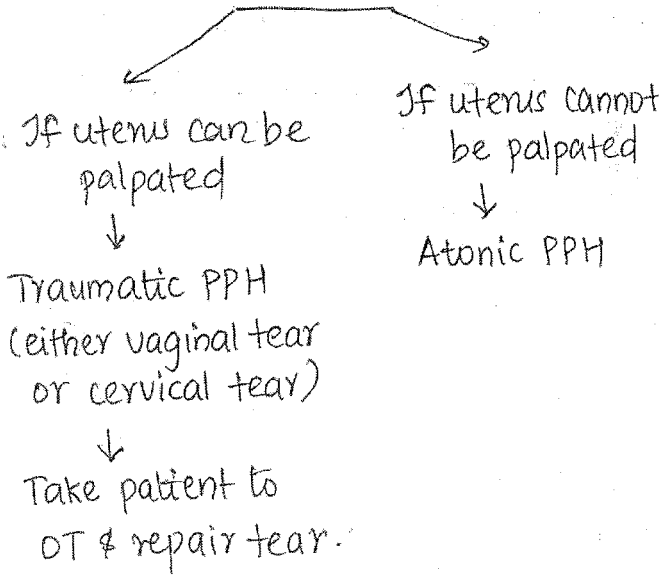 If uterus can be
palpated
↓
Traumatic PPH
(either vaginal tear
or cervical tear)
↓
Take patient to
OT & repair tear.
If uterus cannot
be palpated
↓
Atonic PPH